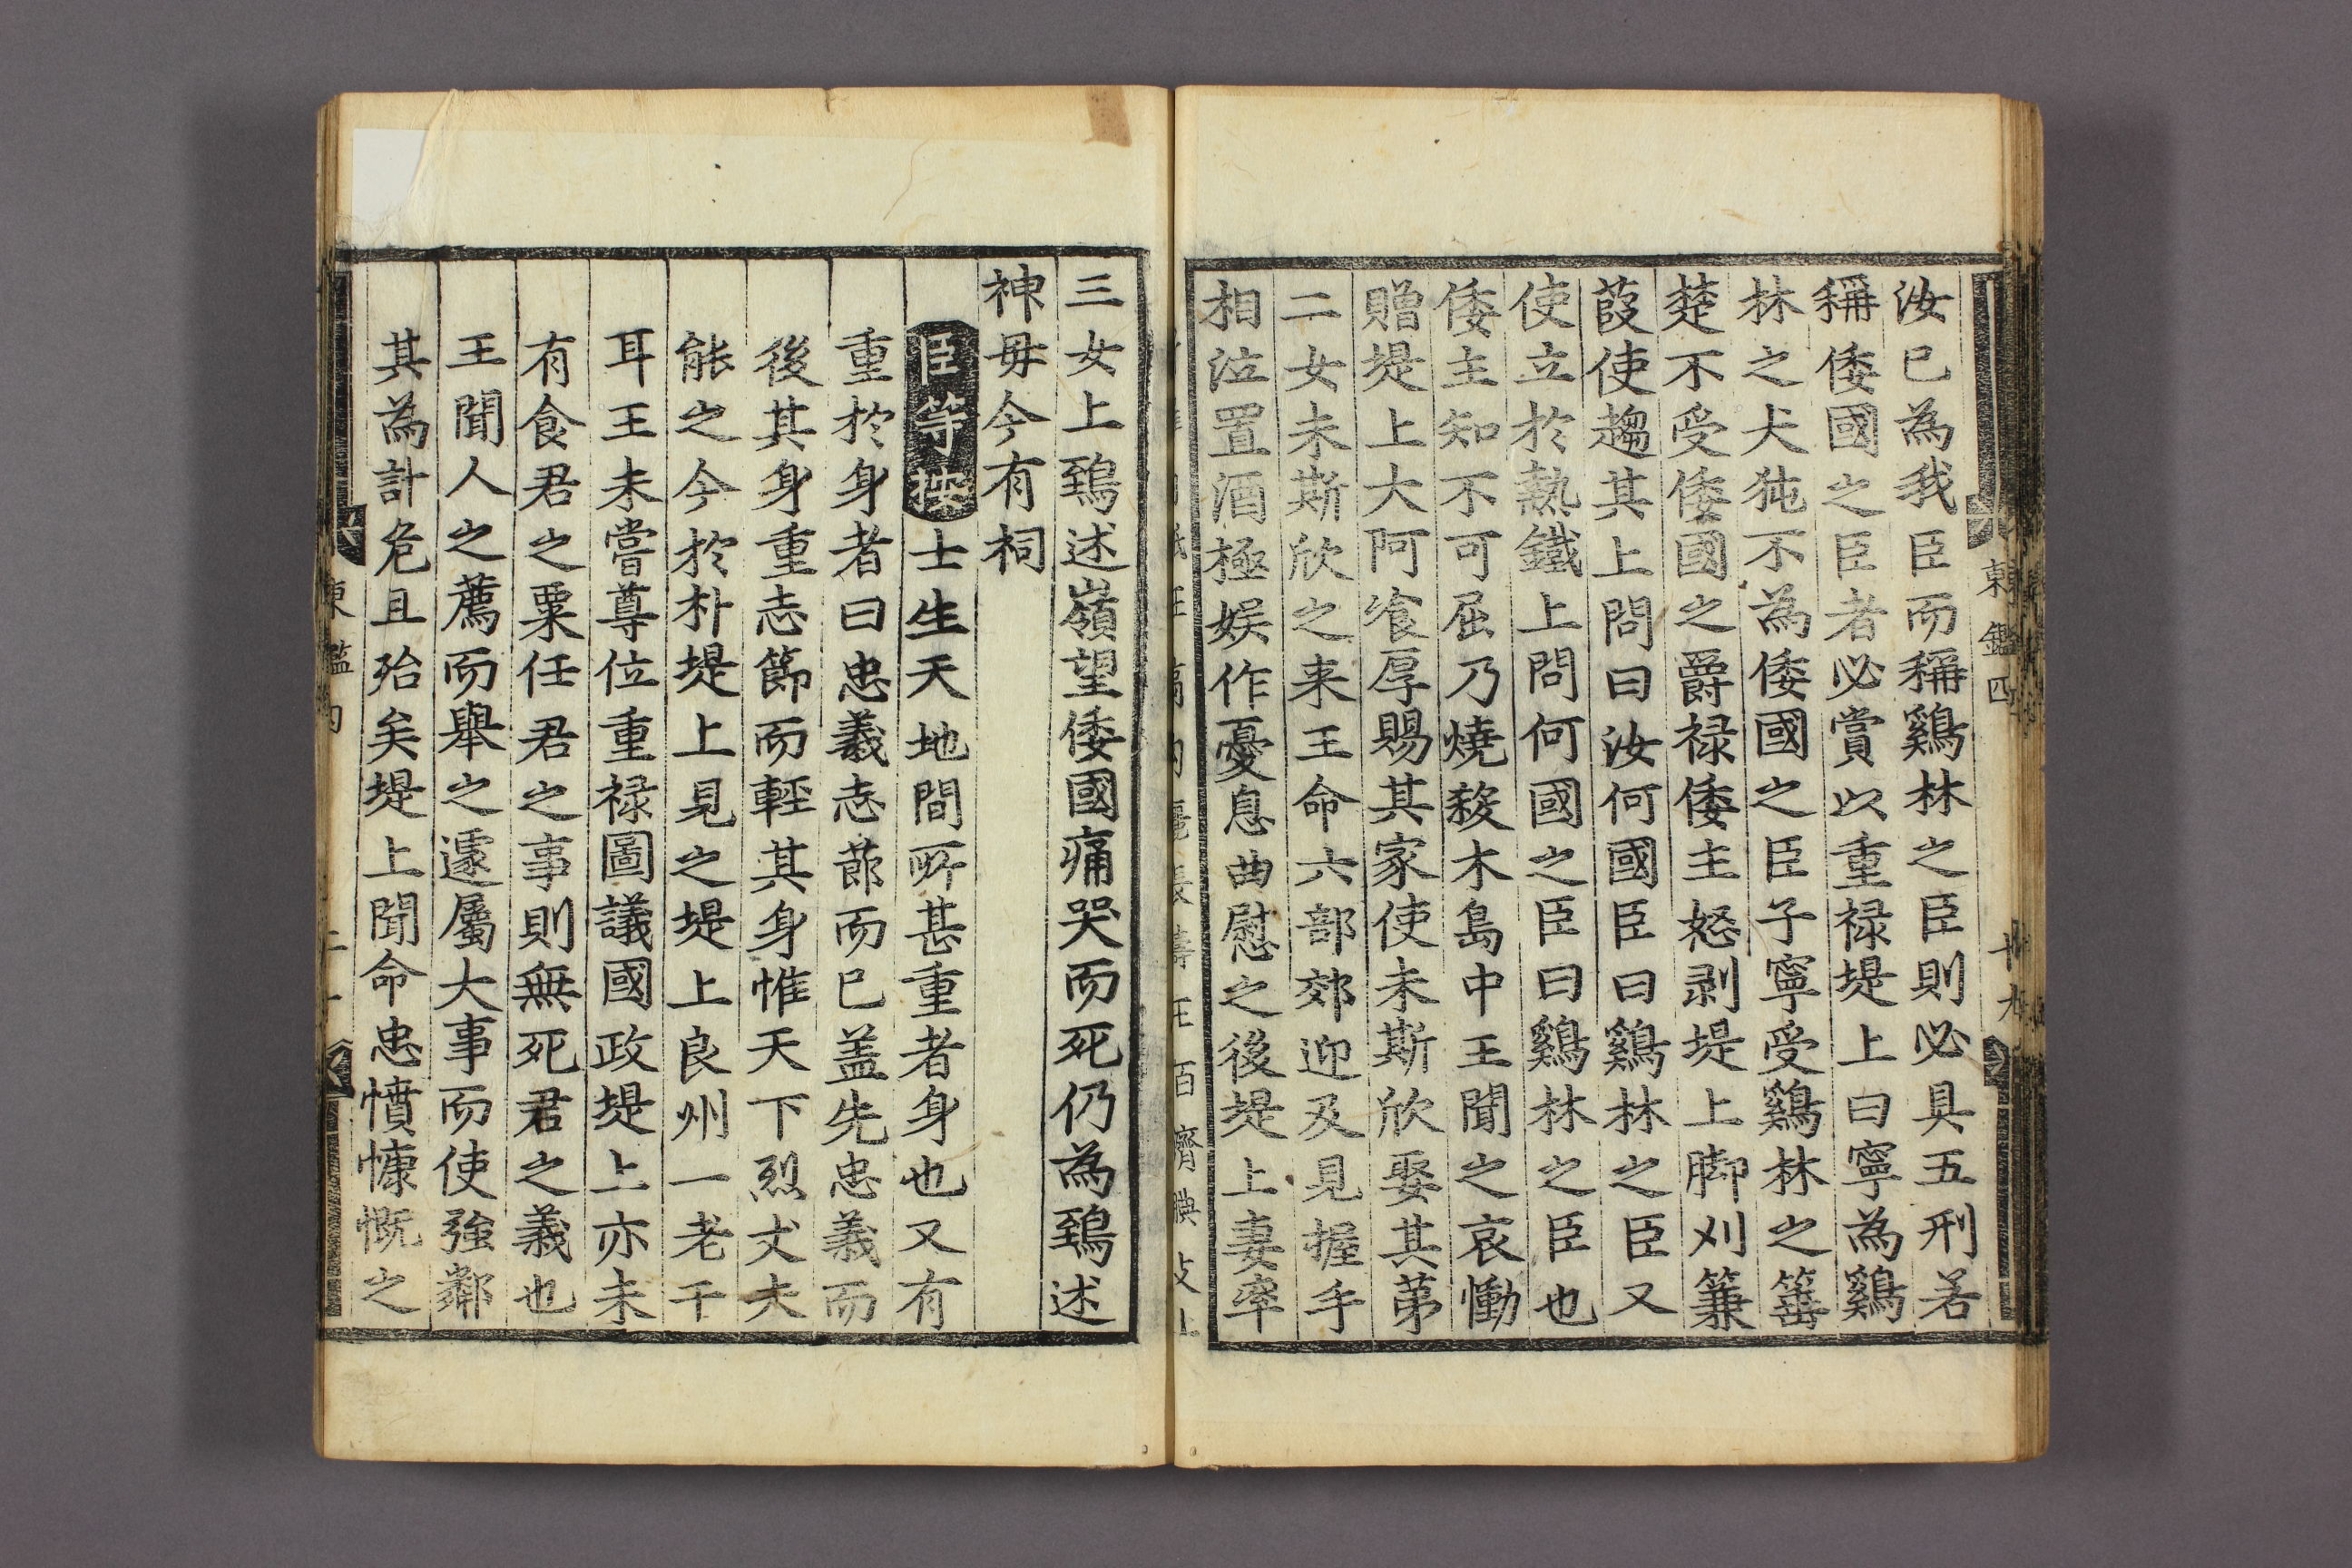 東鑑四
十九
汝已為我臣而稱鷄林之臣則必具五刑若
稱倭國之臣者必賞以重禄堤上曰寧為鷄
林之犬㹠不為倭國之臣子寧受鷄林之箠
楚不受倭國之爵禄倭主怒剥堤上脚刈蒹
葭使趨其上問曰汝何國臣曰鷄林之臣又
使立於熱鐵上問何國之臣曰鷄林之臣也
倭主知不可屈乃燒殺木島中王聞之哀慟
贈堤上大阿飡厚賜其家使未斯欣娶其苐
二女未斯欣之来王命六部郊迎及見握手
相泣置酒極娱作憂息曲慰之後堤上妻率
三女上鵄述嶺望倭國痛哭而死仍為鵄述
神母今有祠
臣等按士生天地間所甚重者身也又有
重於身者曰忠義志莭而已盖先忠義而
後其身重志節而輕其身惟天下烈丈夫
能之今於朴堤上見之堤上良州一老干
耳王未嘗尊位重禄圖議國政堤上亦未
有食君之粟任君之事則無死君之義也
王聞人之薦而舉之遽屬大事而使強鄰
其為計危且殆矣堤上聞命忠憤慷慨之